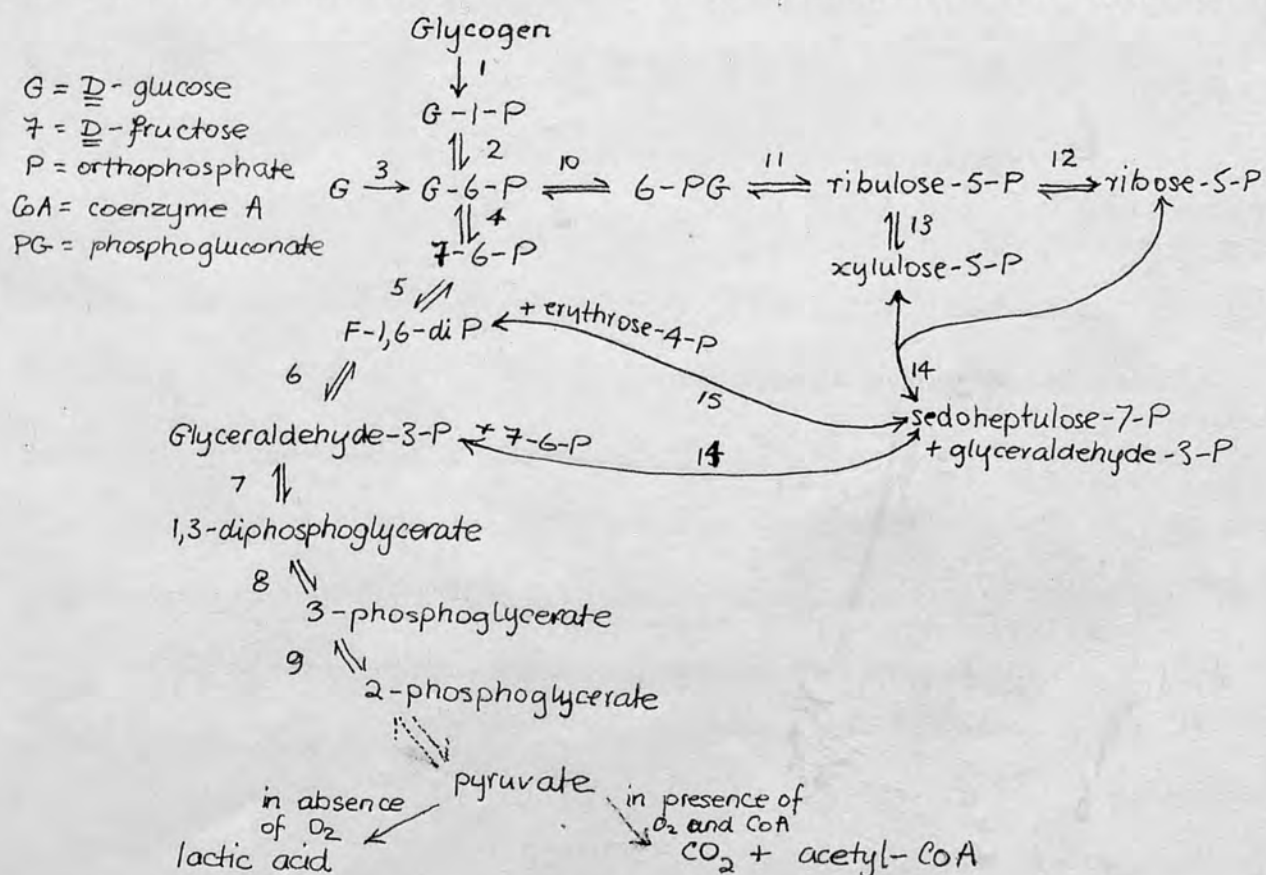 Glycogen
1
G = D - glucose
7 = D - fructose
P = orthophosphate
CoA = coenzyme A
PG = phosphogluconate
G-1-P
2
G 3 G-6-P 10 6-PG 11 ribulose-5-P 12 ribose-5-P
4
13
7-6-P
xylulose-5-P
5
F-1,6-di P
+ erythrose-4-P
14
6
15
sedoheptulose-7-P
+ glyceraldehyde-3-P
Glyceraldehyde-3-P + 7-6-P
14
7
1,3-diphosphoglycerate
8
3-phosphoglycerate
9
2-phosphoglycerate
pyruvate
in absence
of O₂
lactic acid
in presence of
O₂ and CoA
CO₂ + acetyl-CoA